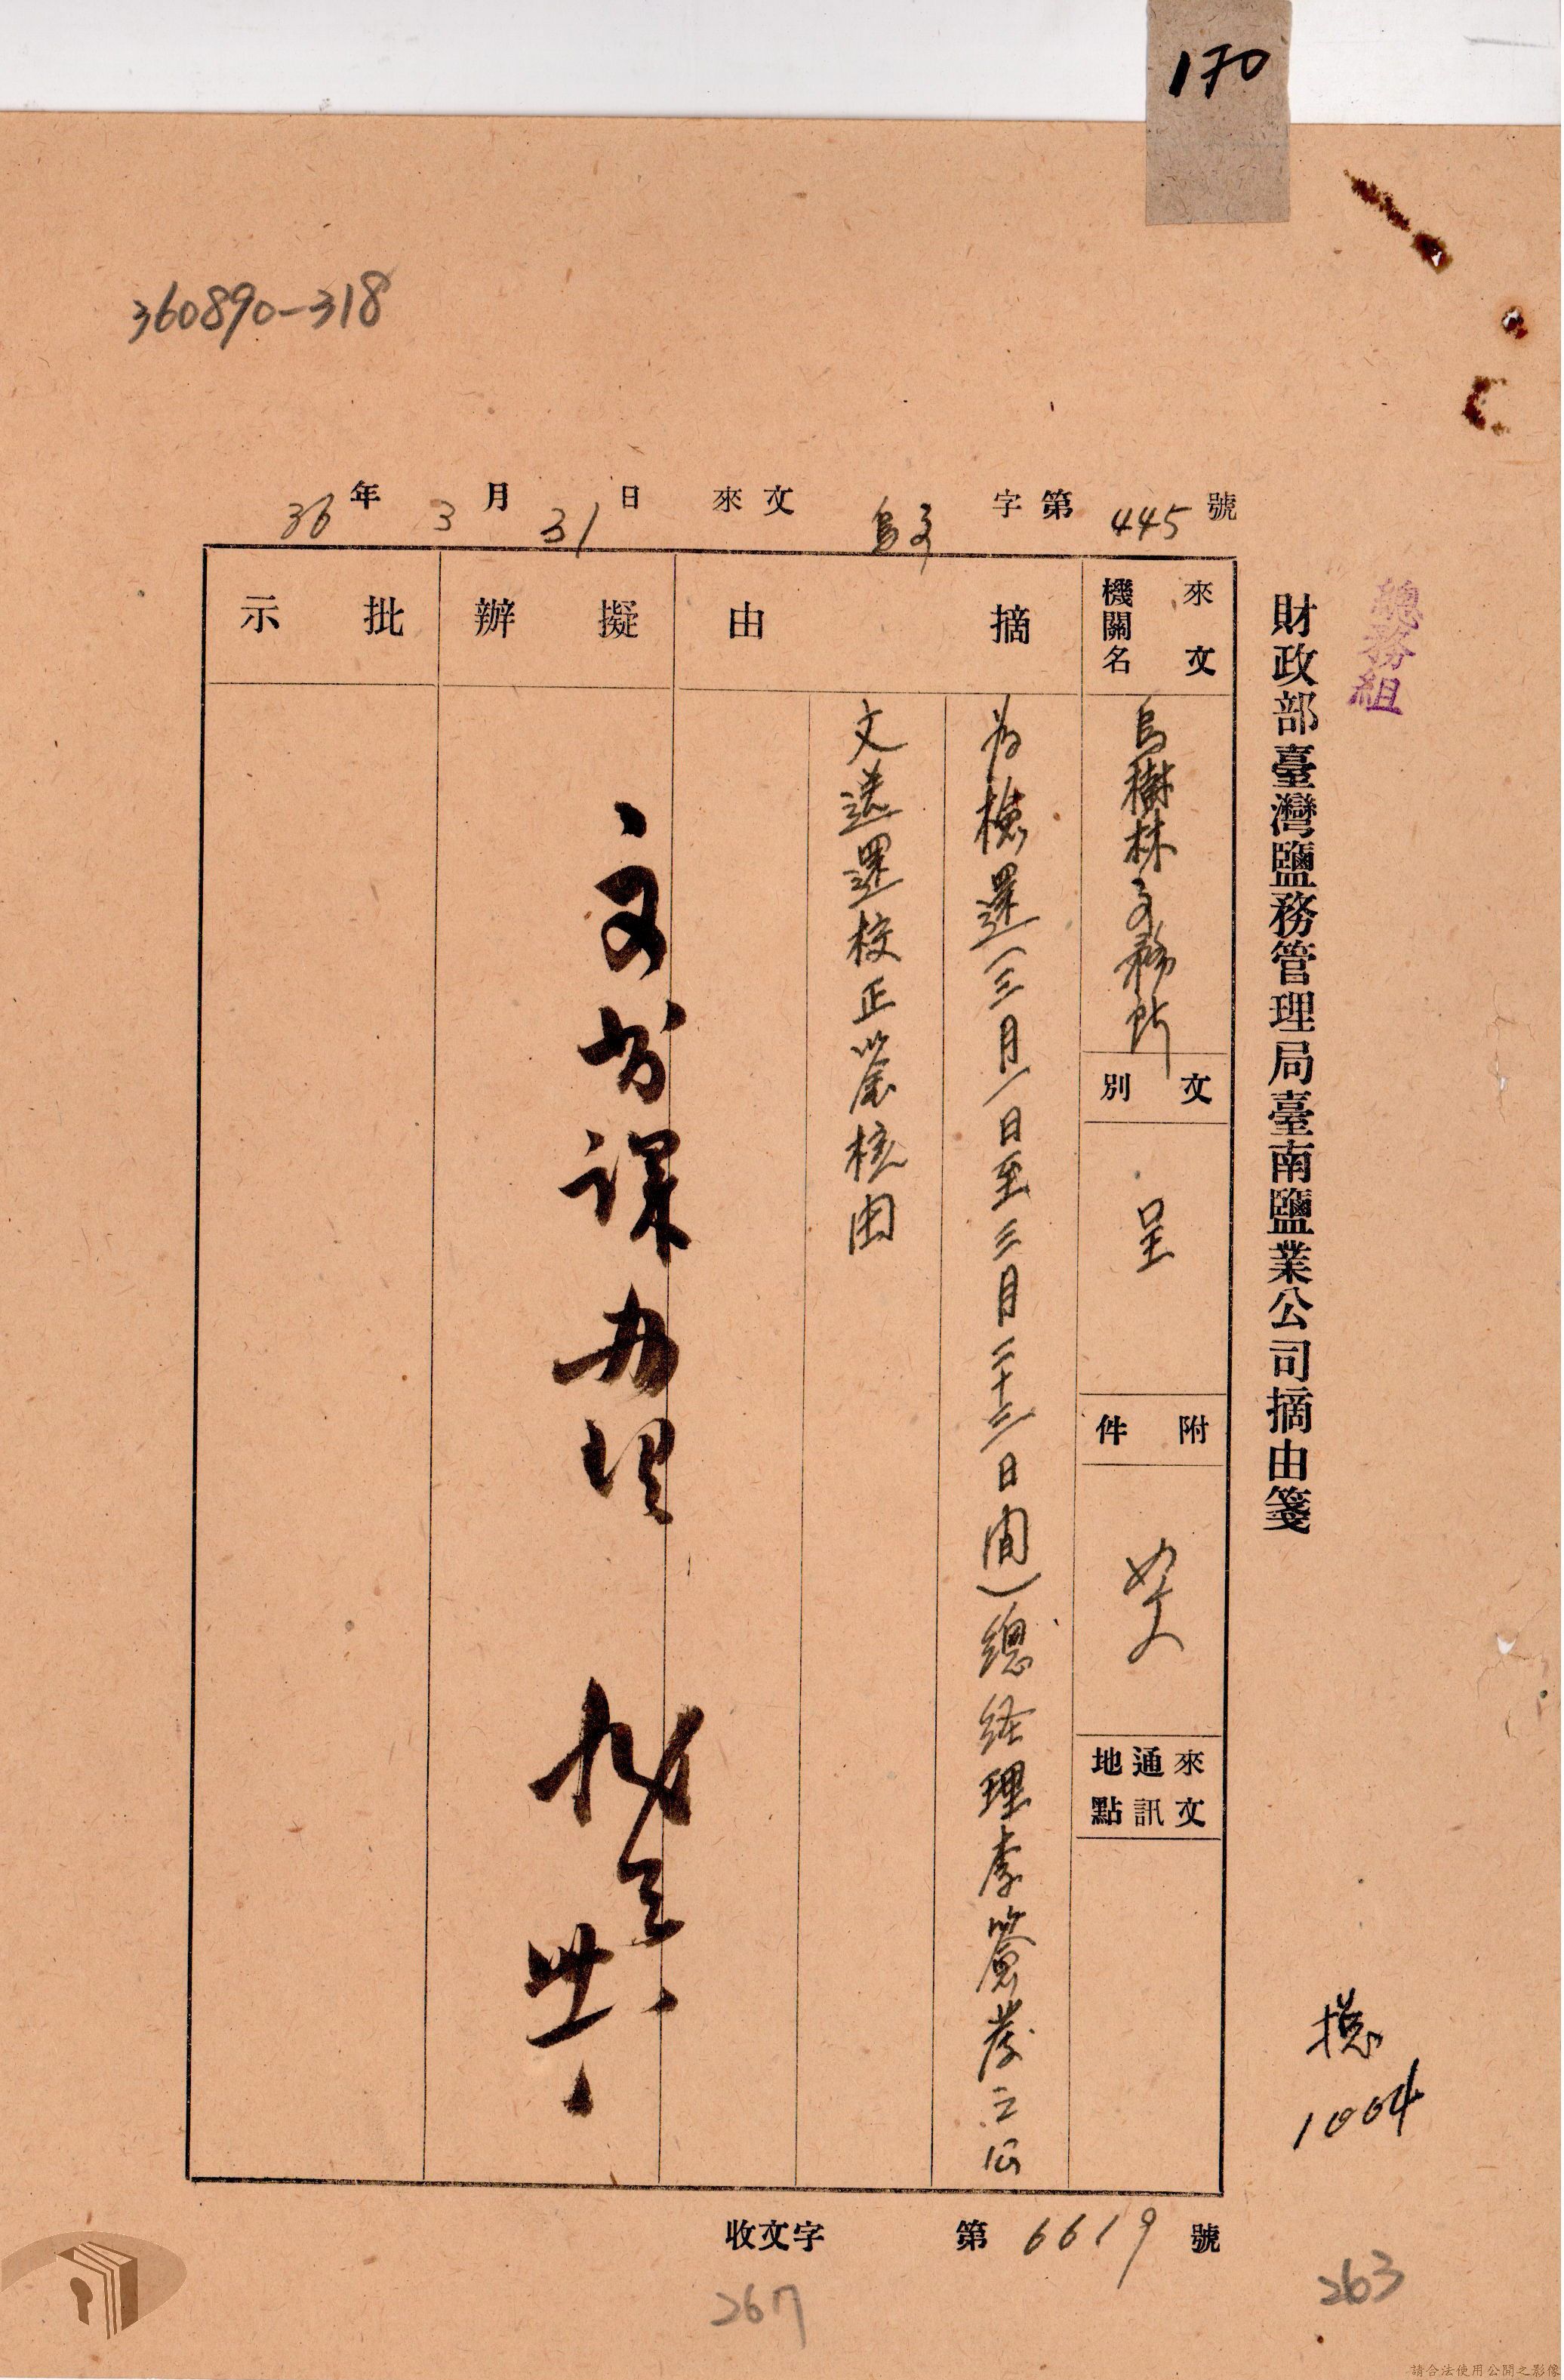 170
360890-318
總務組
財政部臺灣鹽務管理局臺南鹽業公司摘由箋
36年3月31日 來文 烏支 字第445號
來文機關名
烏樹林支務所
文別
呈
附件
如文
來文通訊地點
摘由
為檢還(三月一日至三月二十三日間)總經理李簽發之公
文送還校正簽核由
擬辦
文書課办理
批示
收文字 第6619號
總
1004
267
263
請合法使用公開之影像